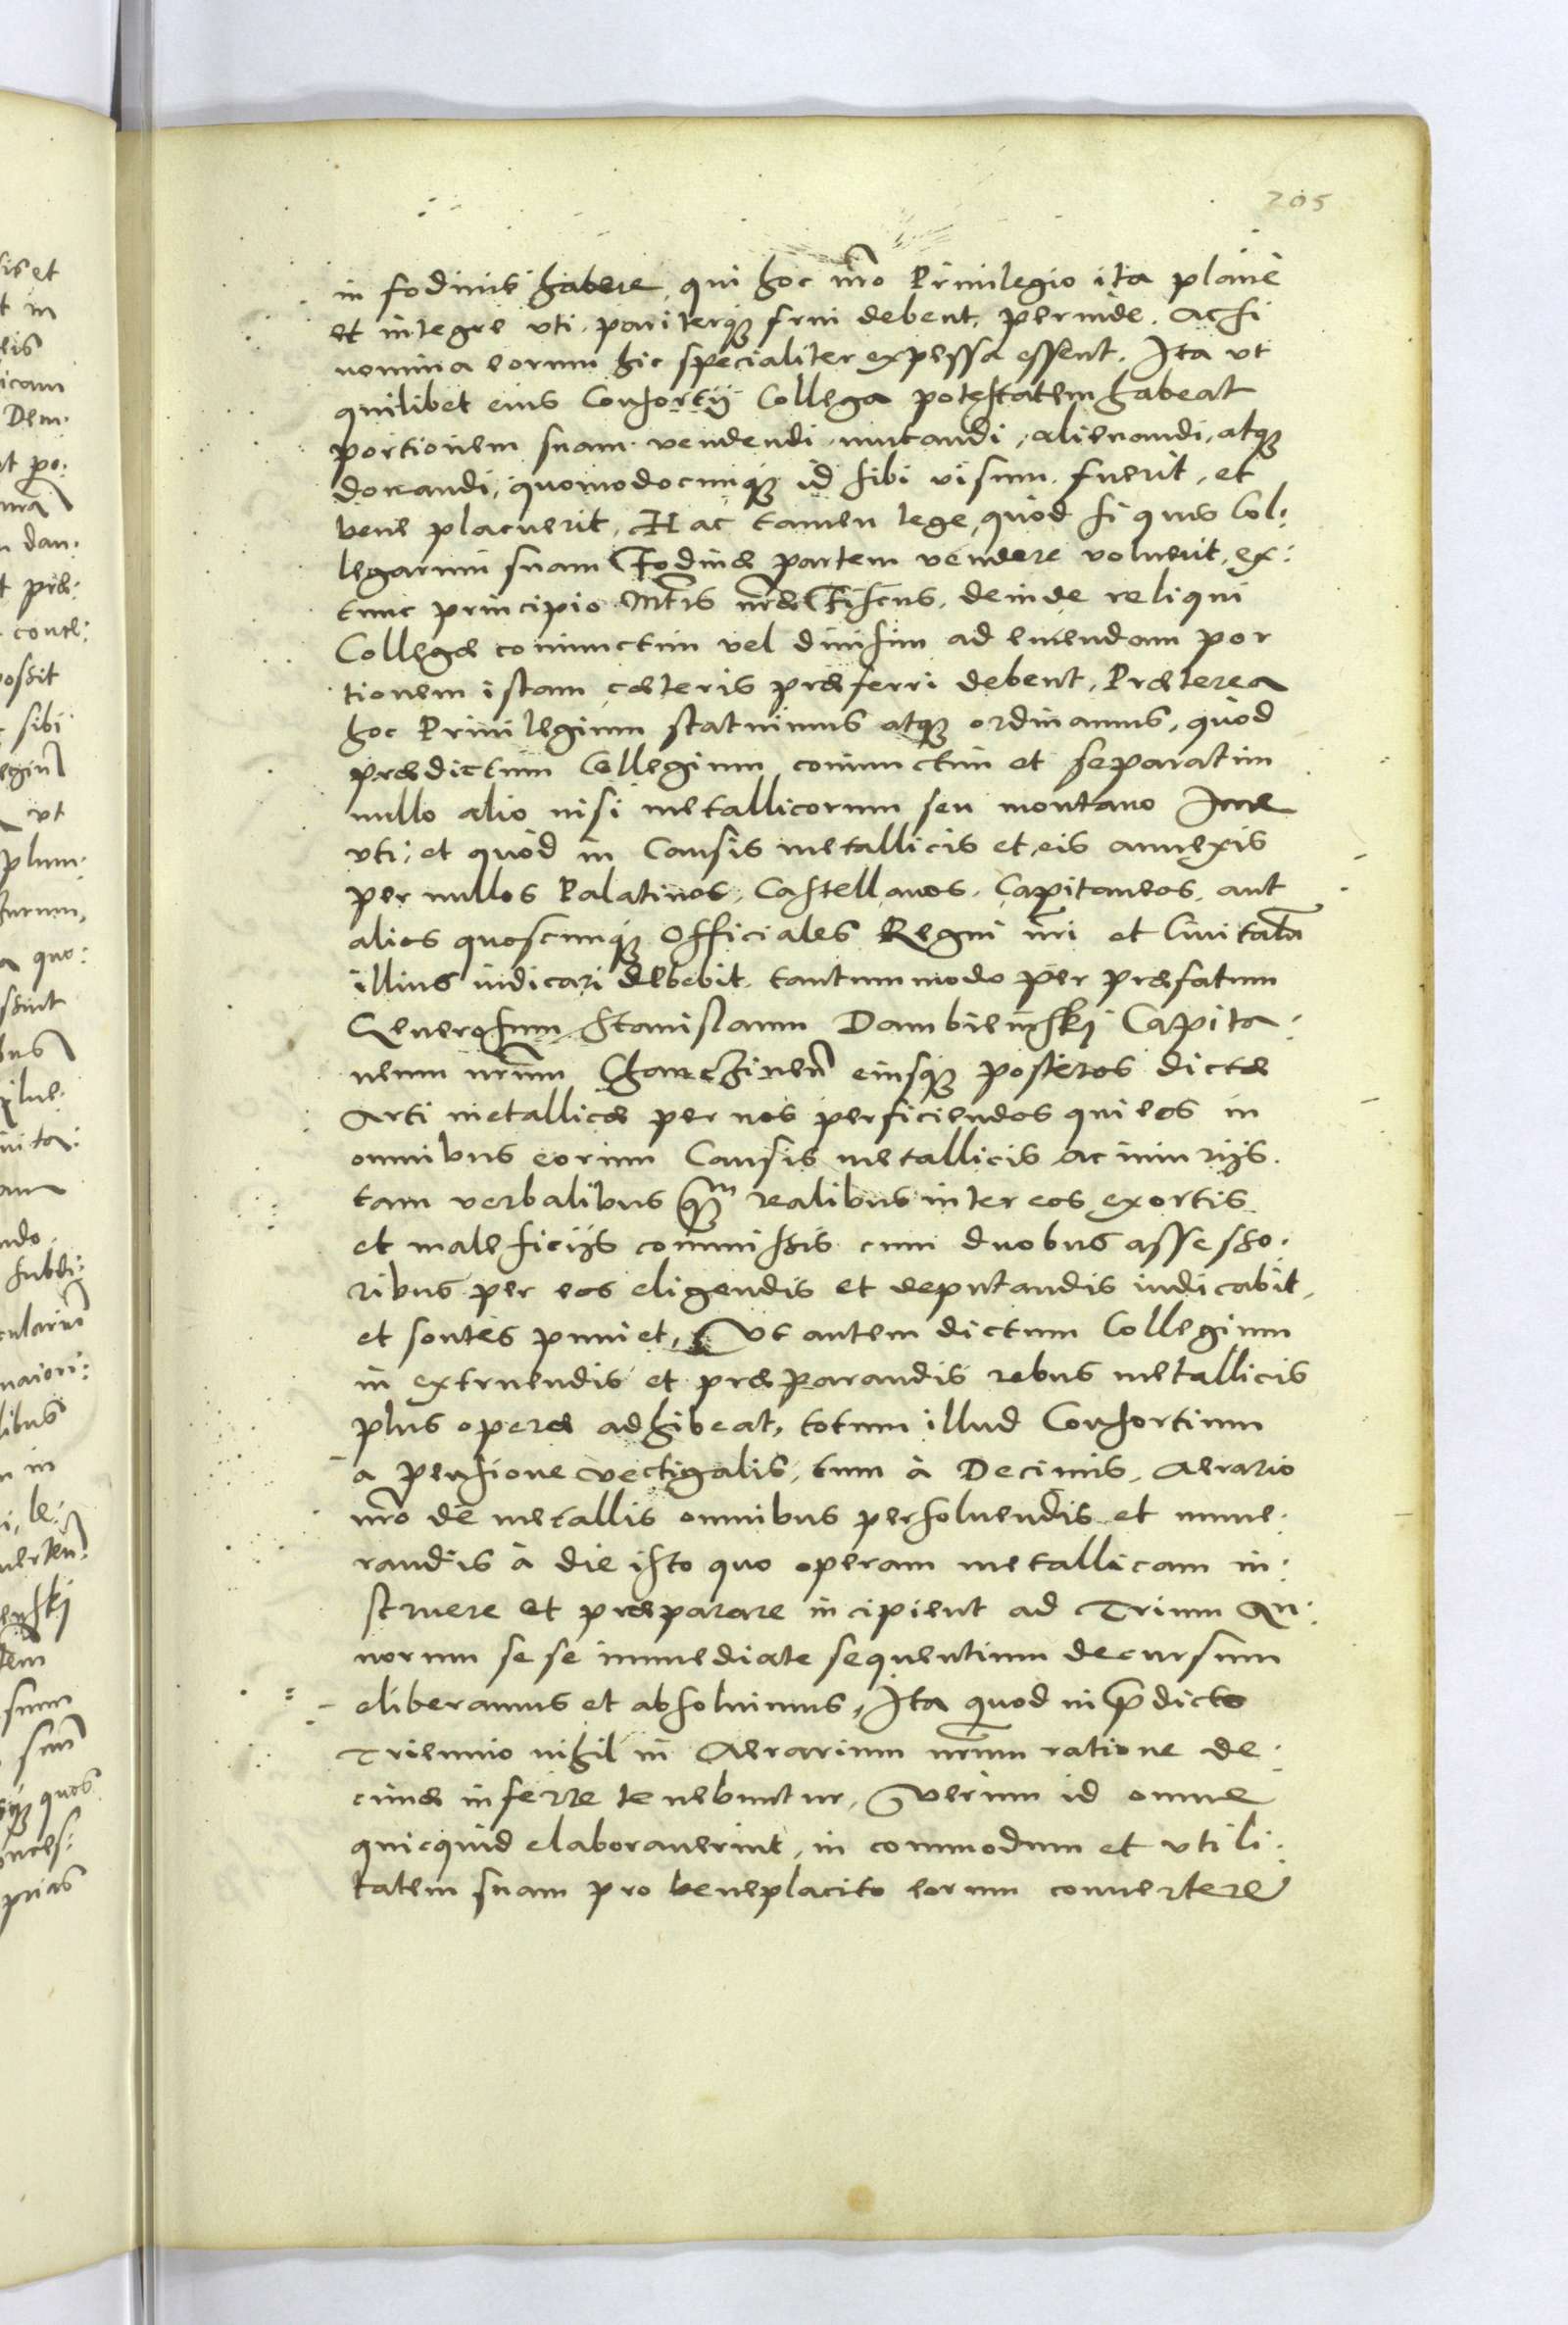 205
in fodinis habere, qui hoc nro Priuilegio ita planè
et integre vti, pariterq̃ frui debent, perinde. Ac si
nomina eorum hic specialiter expressa essent. Ita vt
quilibet eius Consortij Collega potestatem habeat
portionem suam vendendi, mutandi, alienandi, atq̃
donandi, quomodocunq̃ id sibi visum fuerit, et
bene placuerit. Hac tamen lege, quòd si quis Col:
legarum suam Fodinæ partem vendere voluerit, ex:
tunc principio Mtis nræ Fiscus, deinde reliqui
Collegæ coniunctim vel diuisim ad emendam por
tionem istam cæteris præferri debent, Præterea
hoc Priuilegium statuimus atq̃ ordinamus, quòd
prædictum Collegium coniunctim et separatim
nullo alio nisi metallicorum seu montano Iure
vti; et quòd in Causis metallicis et eis annexis
per nullos Palatinos, Castellanos, Capitaneos, aut
alios quoscunq̃ Officiales Regni nri et Ciuitatũ
illius iudicari debebit, tantummodo per præfatum
Generosum Stanislaum Dambienski Capita:
neum nrum Chanczinen̄ eiusq̃ posteros dictæ
Arti metallicæ per nos perficiendos qui eos in
omnibus eorum Causis metallicis ac iniurijs
tam verbalibus q̃m realibus inter eos exortis
et maleficijs commissis cum duobus assesso:
ribus per eos eligendis et deputandis iudicabit,
et sontes puniet, Vt autem dictum Collegium
in extruendis et præparandis rebus metallicis
plus operæ adhibeat, totum illud Consortium
a pensione vectigalis, tum à Decimis, Aerario
nro de metallis omnibus persoluendis et nume:
randis à die isto quo operam metallicam in:
struere et præparare incipient ad Trium An:
norum sese immediate sequentium decursum
eliberamus et absoluimus, Ita quod in p̃dicto
Triennio nihil in Aerarium nrum ratione de:
cimæ inferre tenebuntur, verum id omne
quicquid elaborauerint, in commodum et vtili:
tatem suam pro beneplacito eorum conuertere